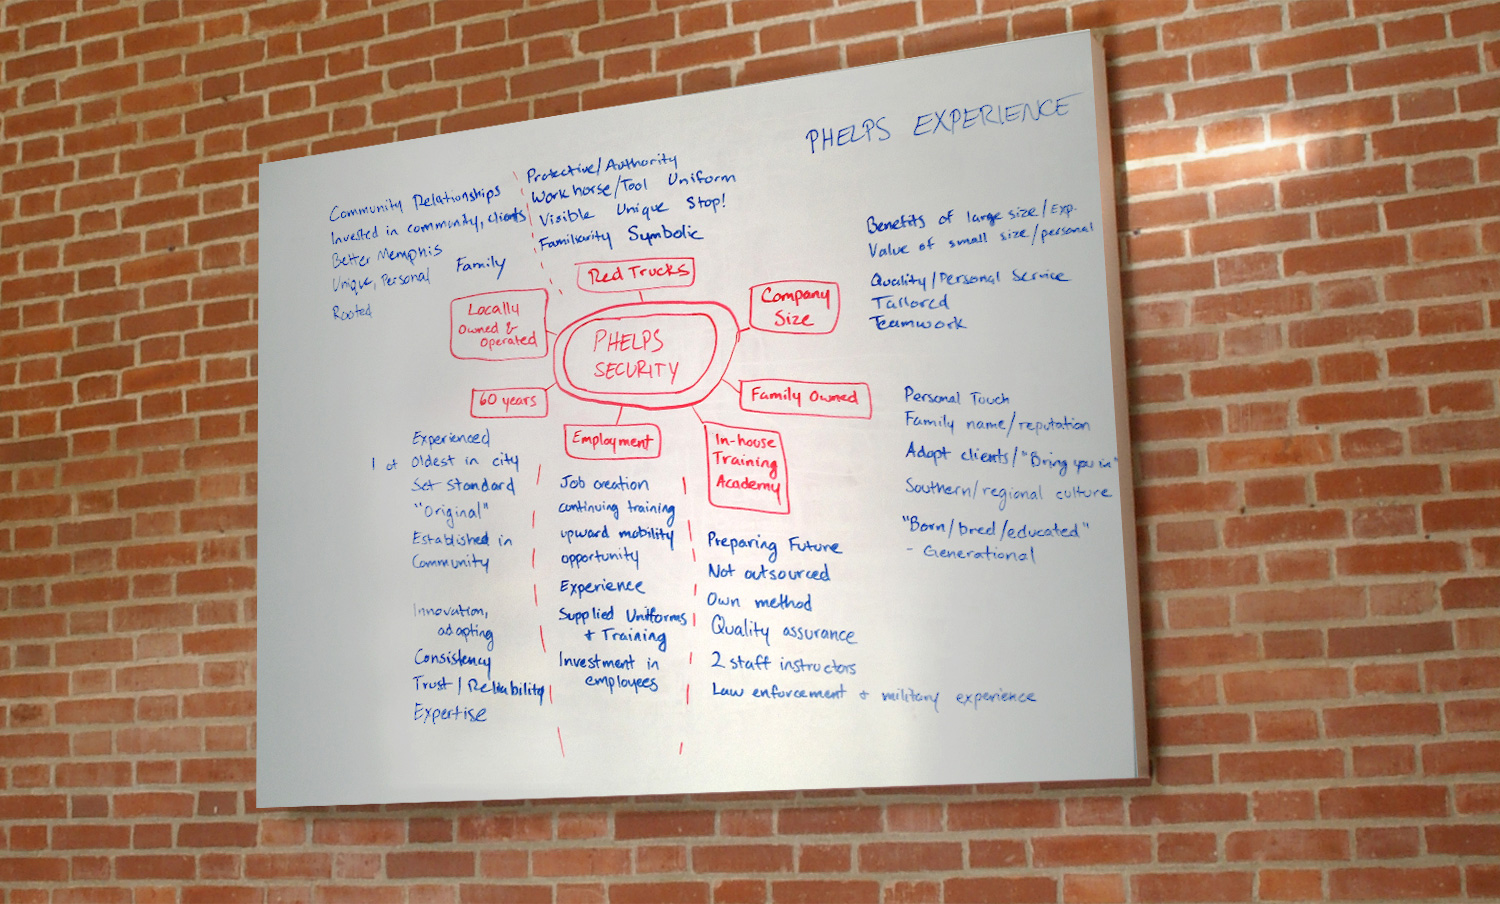 PHELPS EXPERIENCE
Community Relationships
Invested in community, clients
Better Memphis
Unique, Personal Family
Rooted
Protective/Authority
Workhorse/Tool Uniform
Visible Unique Stop!
Familiarity Symbolic
Benefits of large size/Exp.
Value of small size/personal
Quality/Personal Service
Tailored
Teamwork
Red Trucks
Company
Size
Locally
Owned &
Operated
PHELPS
SECURITY
60 years
Family Owned
Employment
In-house
Training
Academy
Experienced
1 of Oldest in city
Set Standard
"Original"
Established in
Community
Innovation,
adapting
Consistency
Trust/Reliability
Expertise
Job creation
continuing training
upward mobility
opportunity
Experience
Supplied Uniforms
+ Training
Investment in
employees
Preparing Future
Not outsourced
Own method
Quality assurance
2 staff instructors
Law enforcement + military experience
Personal Touch
Family name/reputation
Adopt clients/"Bring you in"
Southern/regional culture
"Born/bred/educated"
- Generational